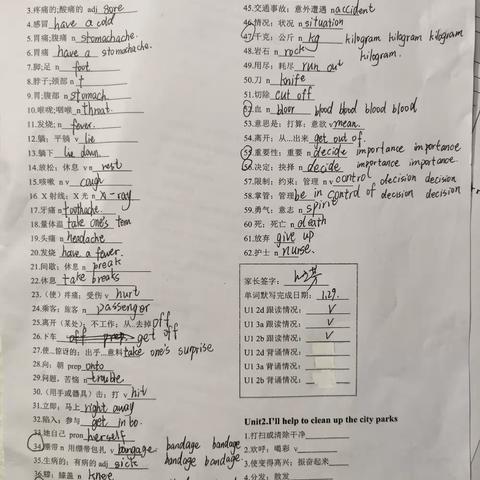 3.疼痛的;酸痛的 adj sore
4.感冒 have a cold
5.胃痛;腹痛 n stomachache.
6.胃痛 have a stomachache.
7.脚;足 n foot
8.脖子;颈部 n t
9.胃;腹部 n stomach
10.喉咙;咽喉 n throat.
11.发烧; n fever.
12.躺;平躺 v lie
13.躺下 lie down.
14.放松;休息 v n rest
15.咳嗽 n v cough
16 X 射线;X 光 n X-ray
17.牙痛 n toothache.
18.量体温 take one's tem
19.头痛 n headache
20.发烧 have a fever.
21.间歇;休息 n break
22.休息 take breaks
23.(使)疼痛;受伤 v hurt
24.乘客;旅客 n passenger
25.离开(某处);不工作;从..去掉 off
26.下车 get off
27.使...惊讶的;出乎...意料 take one's surprise
28.向;朝 prep onto
29.问题,苦恼 n trouble.
30.(用手或器具)击;打 v hit
31.立即;马上 right away
32.陷入;参与 get in bo.
33.她自己 pron herself
34.绷带 n 用绷带包扎 v bangage. bandage bandage
35.生病的;有病的 adj sick bandage bandage.
36.膝;膝盖 n knee.
45.交通事故;意外遭遇 n accident
46.情况;状况 n situation
47.千克;公斤 n kg hilogram hilogram kilogram
48.岩石 n rock hilogram.
49.用尽;耗尽 run out
50.刀 n knife
51.切除 cut off
52.血 n bloor blood blood blood blood
53.意思是;打算;意欲 v mean.
54.离开;从...出来 get out of.
55.重要性;重要 n decide importance importance
56.决定;抉择 n decide importance importance.
57.限制;约束;管理 n v control decision decision
58.掌管;管理 be in control of decision decision
59.勇气;意志 n spirit
60.死;死亡 n death
61.放弃 give up
62.护士 n nurse.
家长签字:
单词默写完成日期: 1.29.
U1 2d 跟读情况: v
U1 3a 跟读情况: v
U1 2b 跟读情况: v
U1 2d 背诵情况:
U1 3a 背诵情况:
U1 2b 背诵情况:
Unit2.I'll help to clean up the city parks
1.打扫或清除干净
2.欢呼;喝彩 v
3.使变得高兴;振奋起来
4.分发;散发